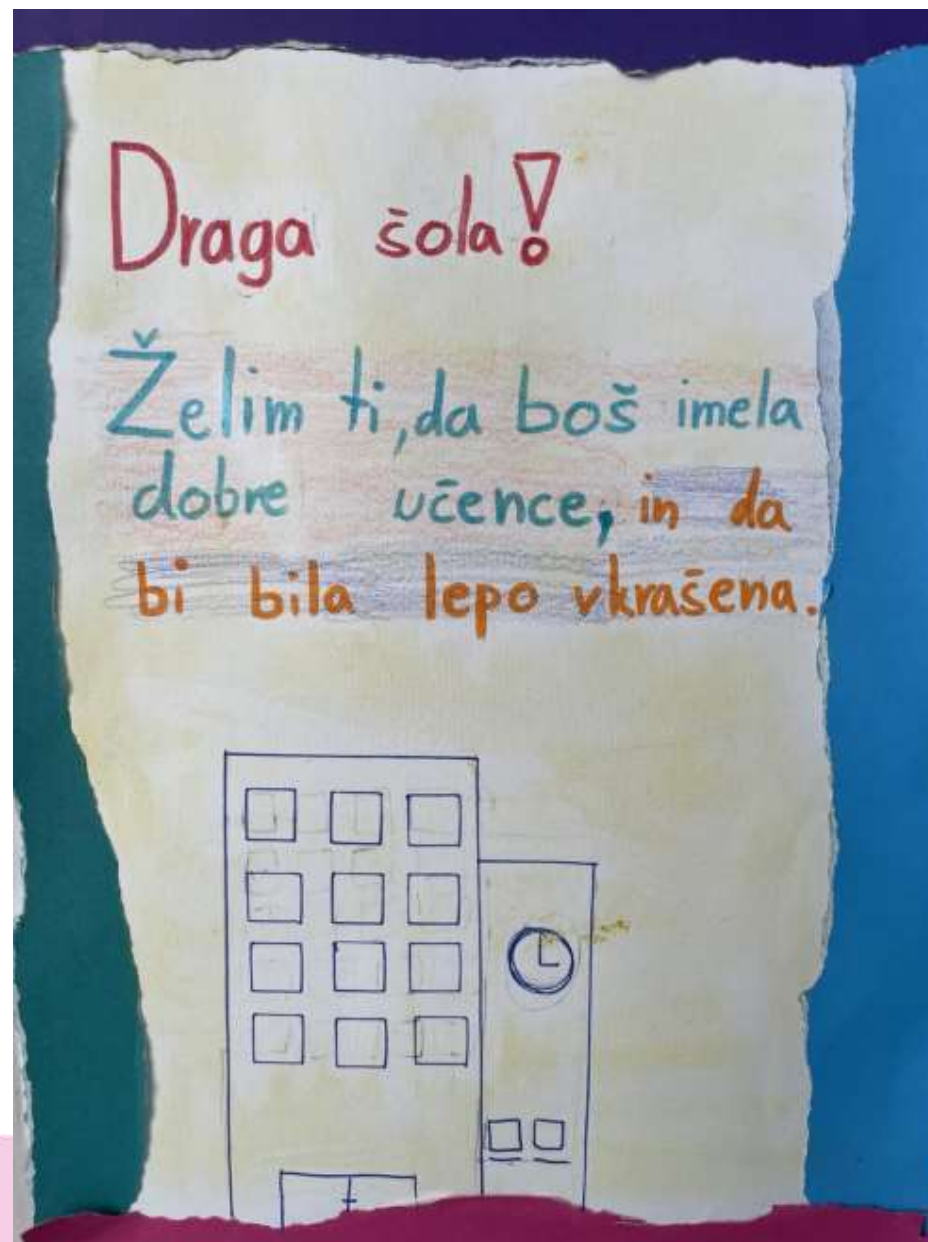 Draga šola!
Želim ti, da boš imela
dobre učence, in da
bi bila lepo vkrašena.